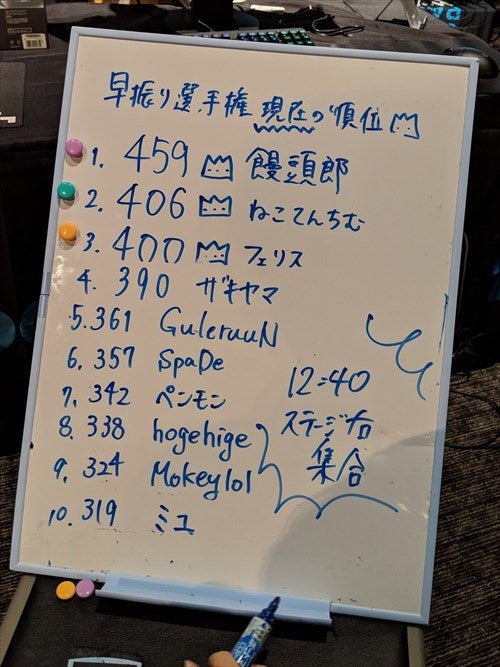 早振り選手権 現在の順位
1. 459 饅頭郎
2. 406 ねこてんちむ
3. 400 フェリス
4. 390 ザキヤマ
5. 361 GuleruuN
6. 357 SpaDe
7. 342 ペンモン
8. 338 hogehige
9. 324 Mokeylol
10. 319 ミユ
12:40
ステージ右
集合